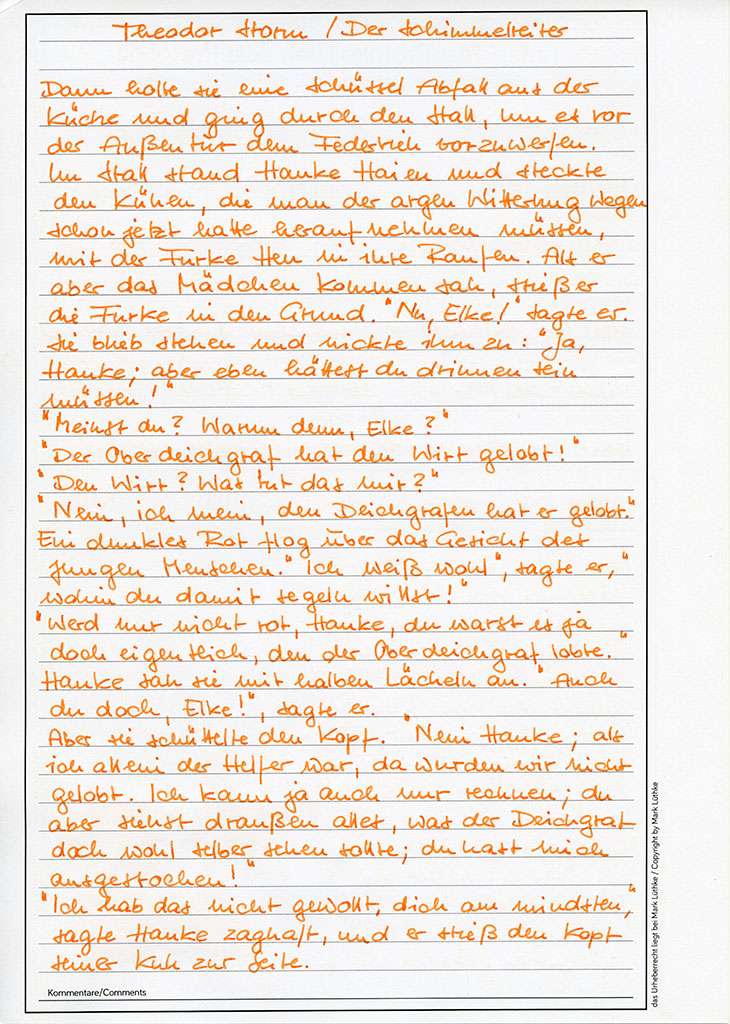 Theodor Storm / Der Schimmelreiter
Dann holte sie eine Schüssel Abfall aus der
Küche und ging durch den Stall, um es vor
der Außentür dem Federvieh vorzuwerfen.
Im Stall stand Hauke Haien und steckte
den Kühen, die man der argen Witterung wegen
schon jetzt hatte heraufnehmen müssen,
mit der Furke Heu in ihre Raufen. Als er
aber das Mädchen kommen sah, stieß er
die Furke in den Grund. "Nu, Elke!" sagte er.
Sie blieb stehen und nickte ihm zu: "Ja,
Hauke; aber eben hättest du drinnen sein
müssen!"
"Meinst du? Warum denn, Elke?"
"Der Oberdeichgraf hat den Wirt gelobt!"
"Den Wirt? Was tut das mir?"
"Nein, ich mein, den Deichgrafen hat er gelobt."
Ein dunkles Rot flog über das Gesicht des
jungen Menschen." Ich weiß wohl", sagte er,"
wohin du damit segeln willst!"
"Werd nur nicht rot, Hauke, du warst es ja
doch eigentlich, den der Oberdeichgraf lobte."
Hauke sah sie mit halben Lächeln an. "Auch
du doch, Elke!", sagte er.
Aber sie schüttelte den Kopf. "Nein Hauke; als
ich allein der Helfer war, da wurden wir nicht
gelobt. Ich kann ja auch nur rechnen; du
aber siehst draußen alles, was der Deichgraf
doch wohl selber sehen sollte; du hast mich
ausgestochen!"
"Ich hab das nicht gewollt, dich am mindsten,"
sagte Hauke zaghaft, und er stieß den Kopf
seiner Kuh zur Seite.
Kommentare/Comments
das Urheberrecht liegt bei Mark Lüthke / Copyright by Mark Lüthke